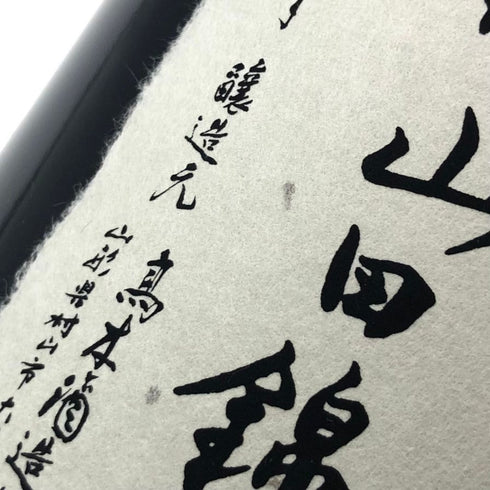 山田錦
醸造元
高木酒造
山形県村山市大